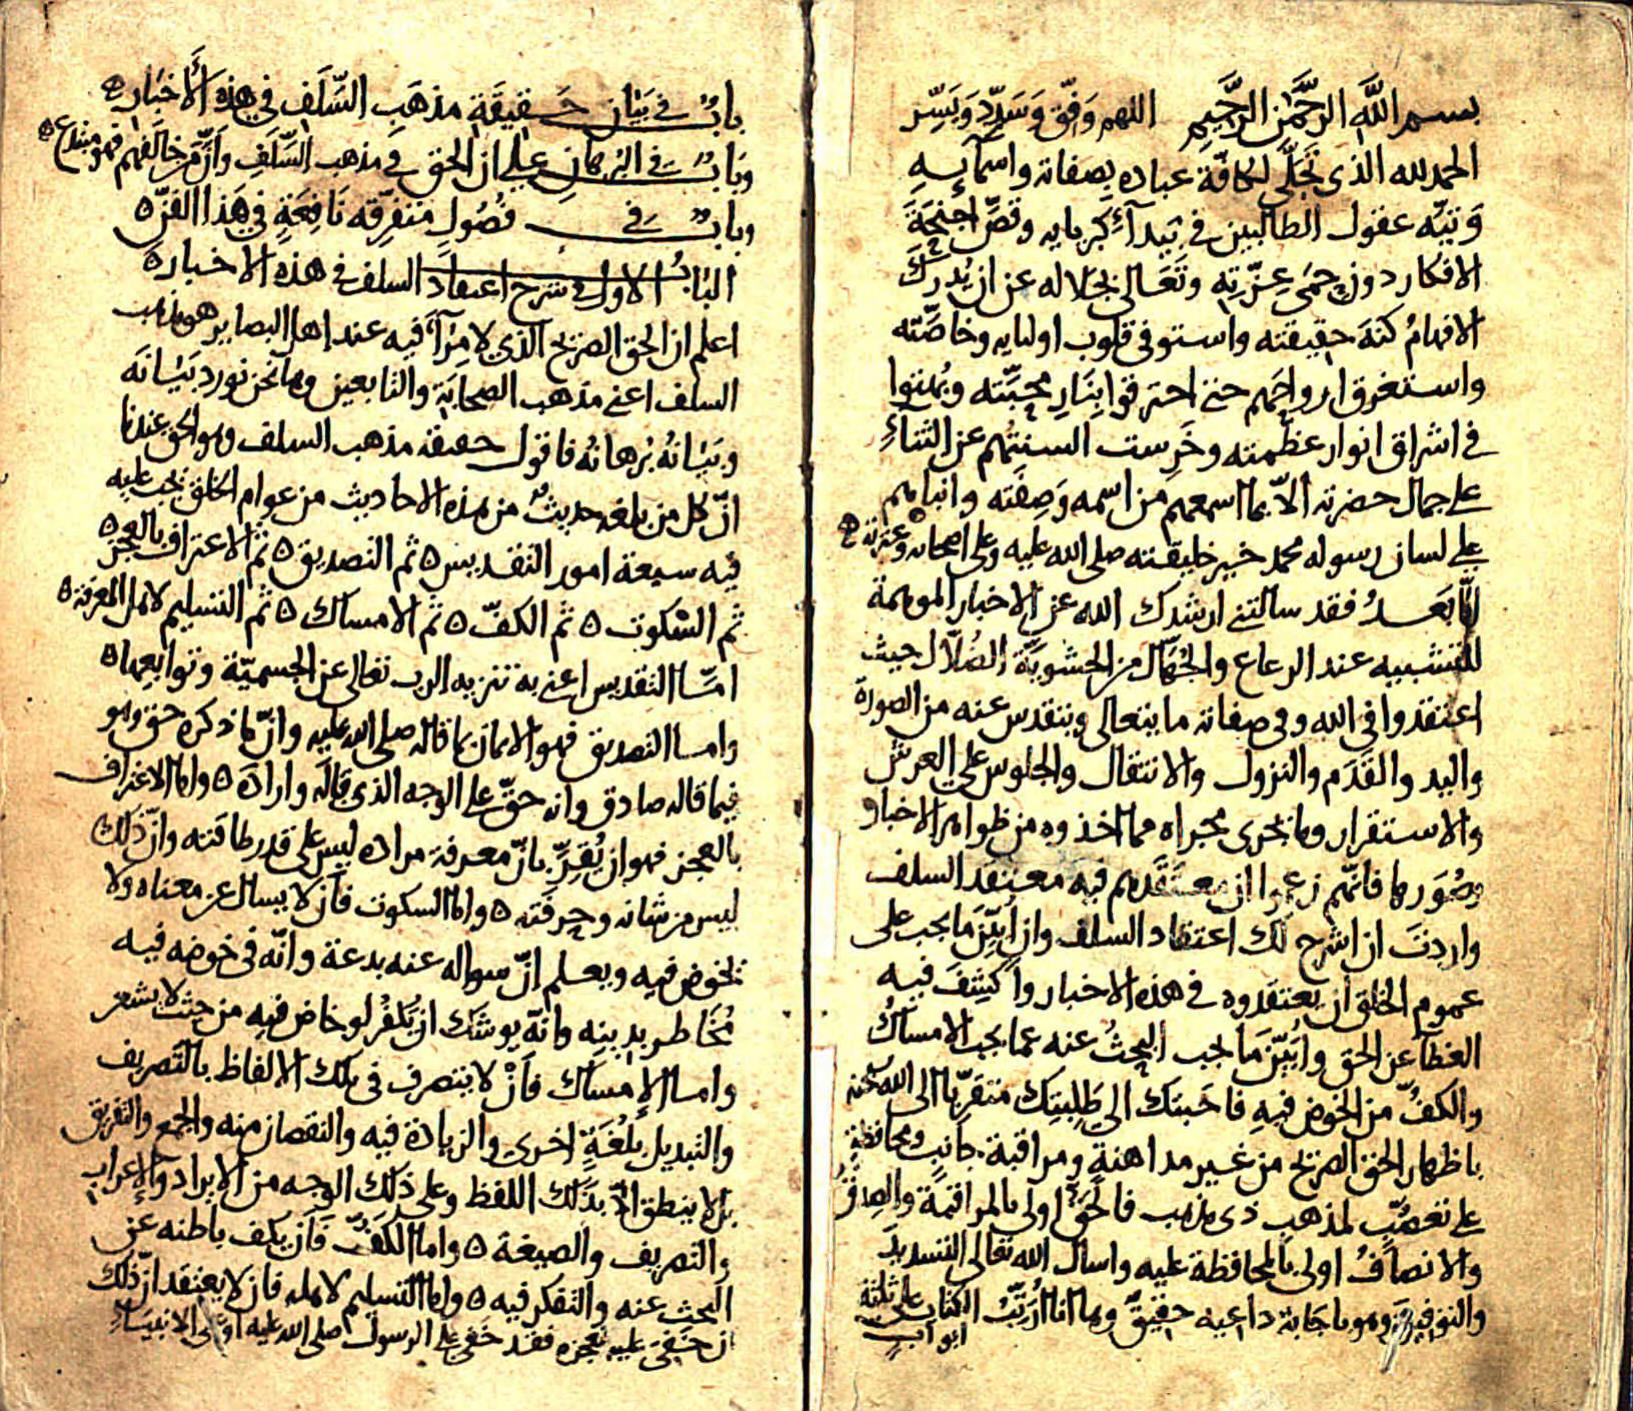 بسم الله الرحمن الرحيم اللهم وفق وسدد ويسر
الحمد لله الذي تجلى لكافة عباده بصفاته واسمآيه
وتيه عقول الطالبين في بيدآء كبريايه وقص اجنحة
الافكار دون حمى عزته وتعالى بجلاله عن ان يدرك
الافهام كنه حقيقته واستوفى قلوب اوليايه وخاصته
واستغرق ارواحهم حتى احترقوا بنار محبته وبهتوا
في اشراق انوار عظمته وخرست السنتهم عن الثناء
على جمال حضرته الا بما اسمعهم من اسمه وصفته وانباهم
على لسان رسوله محمد خير خليقته صلى الله عليه وعلى اصحابه وعترته
اما بعد فقد سالتني ارشدك الله عن الاخبار الموهمة
للتشبيه عند الرعاع والجهال من الحشوية الضلال حيث
اعتقدوا في الله وفي صفاته ما يتعالى ويتقدس عنه من الصورة
واليد والقدم والنزول والانتقال والجلوس على العرش
والاستقرار وما يجرى مجراه مما اخذوه من ظواهر الاخبار
وصورها فانهم زعموا ان معتقدهم فيه معتقد السلف
واردت ان اشرح لك اعتقاد السلف وان ابين ما يجب على
عموم الخلق ان يعتقدوه في هذه الاخبار واكشف فيه
الغطآ عن الحق وابين ما يجب البحث عنه عما يجب الامساك
والكف من الخوض فيه فاجبتك الى طلبتك متقربا الى الله سبحنه
باظهار الحق الصريح من غير مداهنة ومراقبة جانب ومحافظة
على تعصب لمذهب ذى مذهب فالحق اولى بالمراقبة والصدق
والانصاف اولى بالمحافظة عليه واسال الله تعالى التسديد
والتوفيق وهو باجابة داعيه حقيق وها انا ارتب الكتاب على ثلثة
ابواب
باب في بيان حقيقة مذهب السلف في هذه الأخبار ه
وباب في البرهان على ان الحق في مذهب السلف وان من خالفهم فهو مبتدع ه
وباب في فصول متفرقه نافعة في هذا الفن ه
الباب الاول في شرح اعتقاد السلف في هذه الاخبار ه
اعلم ان الحق الصريح الذي لا مرآء فيه عند اهل البصاير هو مذهب
السلف اعني مذهب الصحابة والتابعين وها نحن نورد بيانه
وبيانه برهانه فاقول حقيقة مذهب السلف وهو الحق عندنا
ان كل من بلغه حديث من هذه الاحاديث من عوام الخلق يجب عليه
فيه سبعة امور التقديس ه ثم التصديق ه ثم الاعتراف بالعجز ه
ثم السكوت ه ثم الكف ه ثم الامساك ه ثم التسليم لاهل المعرفة ه
اما التقديس اعني به تنزيه الرب تعالى عن الجسمية وتوابعها ه
واما التصديق فهو الايمان بما قاله صلى الله عليه وان ما ذكره حق وهو
فيما قاله صادق وانه حق على الوجه الذي قاله واراده ه واما الاعتراف
بالعجز فهو ان يقر بان معرفة مراده ليس على قدر طاقته وان ذلك
ليس من شانه وحرفته ه واما السكوت فان لا يسال عن معناه ولا
يخوض فيه ويعلم ان سواله عنه بدعة وانه في خوضه فيه
مخاطر بدينه وانه يوشك ان يكفر لو خاض فيه من حيث لا يشعر
واما الإمساك فأن لا يتصرف في تلك الالفاظ بالتصريف
والتبديل بلغة اخرى والزيادة فيه والنقصان منه والجمع والتفريق
بل لا ينطق الا بذلك اللفظ وعلى ذلك الوجه من الايراد والإعراب
والتصريف والصيغة ه واما الكف فأن يكف باطنه عن
البحث عنه والتفكر فيه ه واما التسليم لاهله فان لا يعتقد ان ذلك
ان خفى عليه لعجزه فقد خفى على الرسول صلى الله عليه او على الانبياء